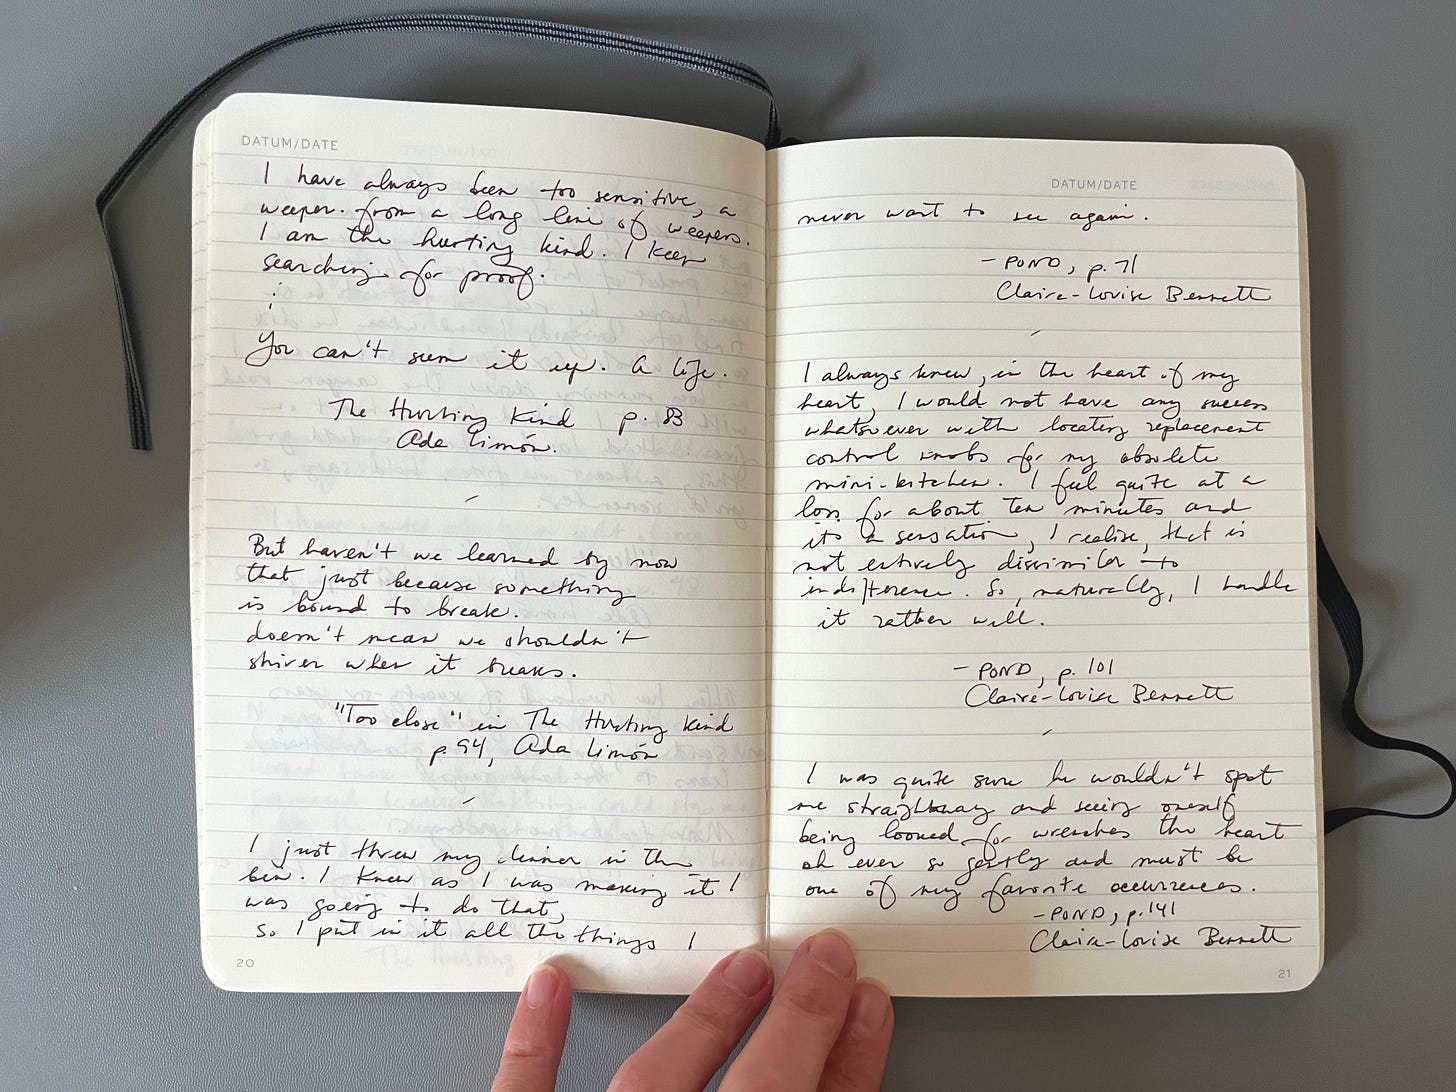 DATUM/DATE
I have always been too sensitive, a
weeper. from a long line of weepers.
I am the hurting kind. I keep
searching for proof.
:
:
You can't sum it up. A life.
The Hurting Kind p. 83
Ada Limón.
-
But haven't we learned by now
that just because something
is bound to break.
doesn't mean we shouldn't
shiver when it breaks.
"Too close" in The Hurting Kind
p. 94, Ada Limón
-
I just threw my dinner in the
bin. I knew as I was making it I
was going to do that,
so I put in it all the things I
20
DATUM/DATE
never want to see again.
- POND, p. 71
Claire-Louise Bennett
-
I always knew, in the heart of my
heart, I would not have any success
whatsoever with locating replacement
control knobs for my obsolete
mini-kitchen. I feel quite at a
loss for about ten minutes and
it's a sensation, I realise, that is
not entirely dissimilar to
indifference. So, naturally, I handle
it rather well.
- POND, p. 101
Claire-Louise Bennett
-
I was quite sure he wouldn't spot
me straightaway and seeing oneself
being looked for wrenches the heart
oh ever so gently and must be
one of my favorite occurrences.
- POND, p. 141
Claire-Louise Bennett
21